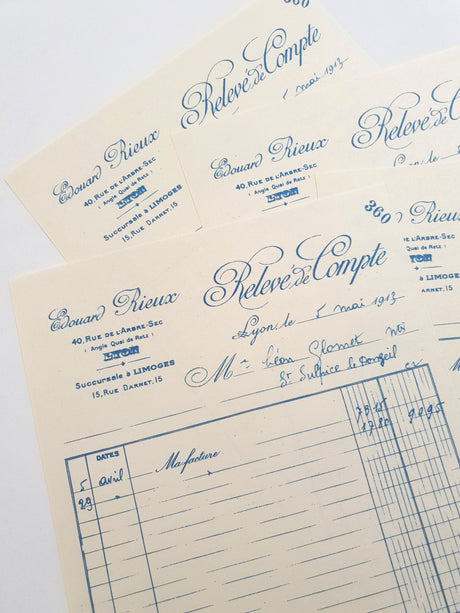 360
Relevé de Compte
5 mai 1913
Edouard Rieux
40, RUE DE L'ARBRE-SEC
( Angle Quai de Retz )
LYON
Succursale à LIMOGES
15, RUE DARNET, 15
Relevé de
Lyon, le
Edouard Rieux
40, RUE DE L'ARBRE-SEC
( Angle Quai de Retz )
LYON
Succursale à LIMOGES
15, RUE DARNET, 15
Rieux
E L'ARBRE-SEC
Quai de Retz )
à LIMOGES
ARNET, 15
360
Relevé de Compte
Edouard Rieux
40, RUE DE L'ARBRE-SEC
( Angle Quai de Retz )
LYON
Succursale à LIMOGES
15, RUE DARNET, 15
Lyon, le 5 mai 1913
Mr Léon
St Sulpice le
DATES
5 avril Ma facture 73.15
29 " " 17.80 90.95